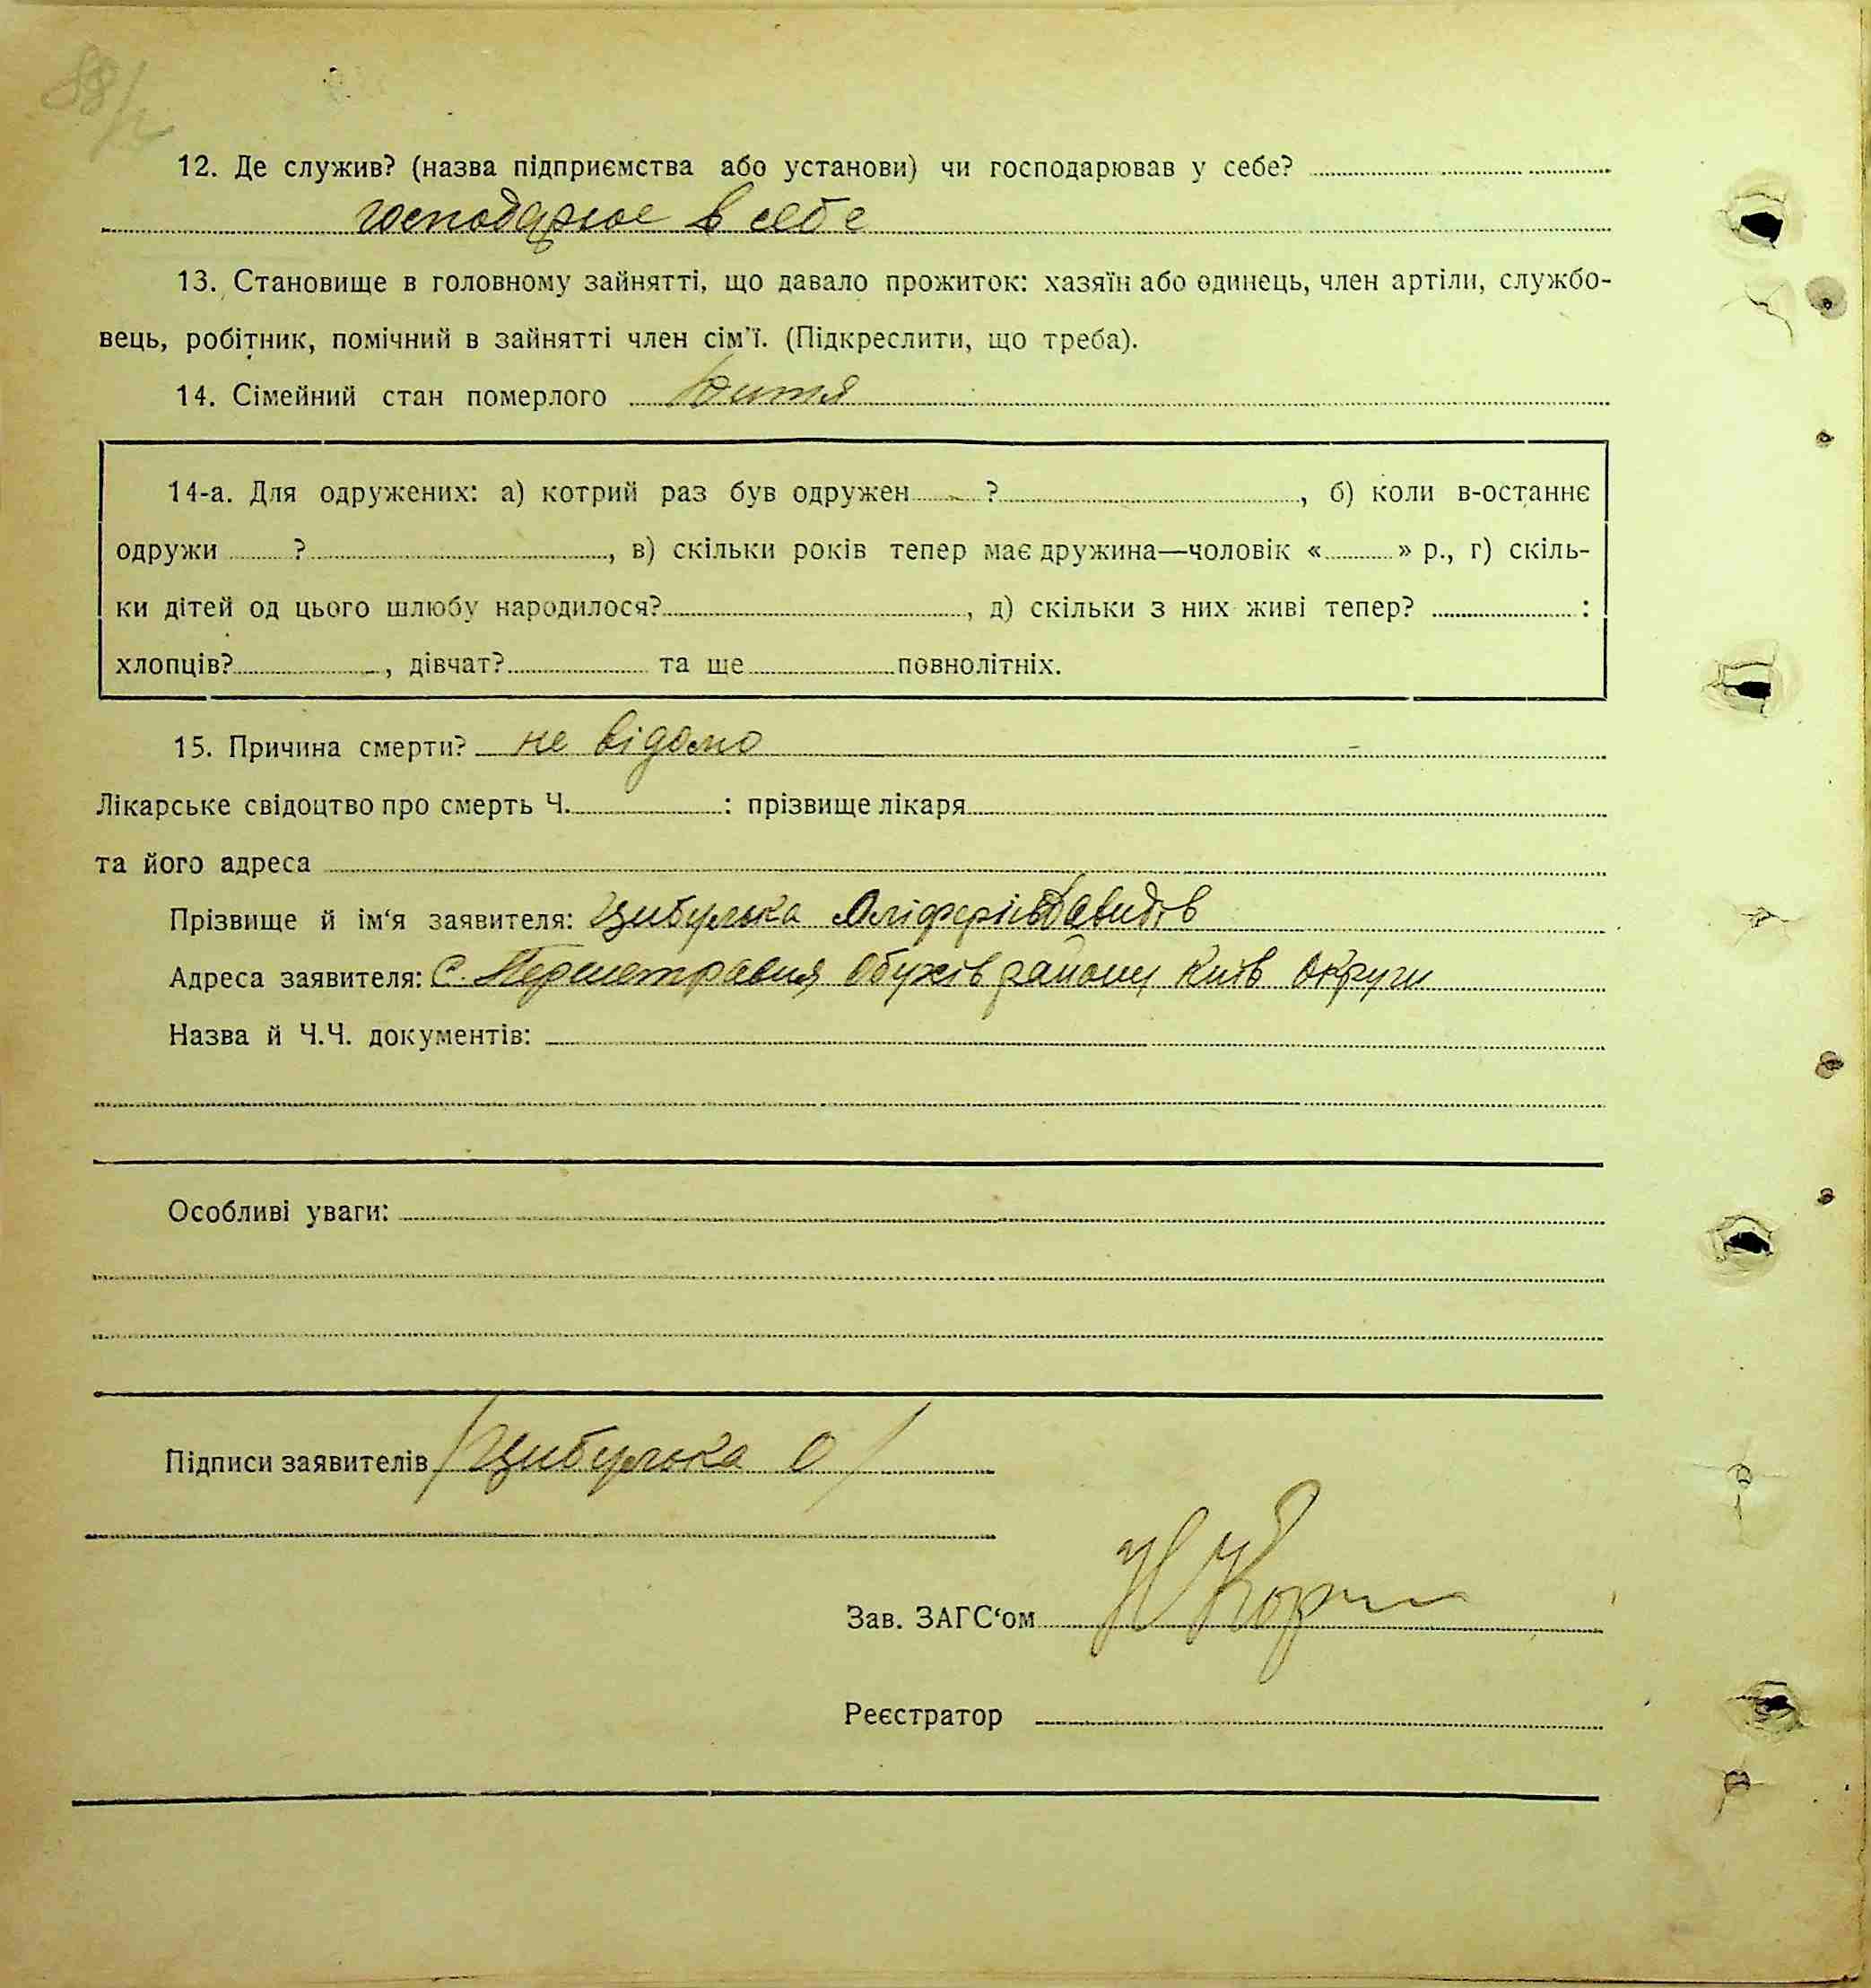 88/2
12. Де служив? (назва підприємства або установи) чи господарював у себе?
господарює в себе
13. Становище в головному зайнятті, що давало прожиток: хазяїн або одинець, член артіли, службо-
вець, робітник, помічний в зайнятті член сім'ї. (Підкреслити, що треба).
14. Сімейний стан померлого дитя
14-а. Для одружених: а) котрий раз був одружен ?, б) коли в-останнє
одружи ?, в) скільки років тепер має дружина—чоловік « » р., г) скіль-
ки дітей од цього шлюбу народилося?, д) скільки з них живі тепер? :
хлопців?, дівчат? та ще повнолітніх.
15. Причина смерти? не відомо
Лікарське свідоцтво про смерть Ч. : прізвище лікаря
та його адреса
Прізвище й ім'я заявителя: Цибулька Оліферій Давидів
Адреса заявителя: С. Обухів району Київ Округи
Назва й Ч.Ч. документів:
Особливі уваги:
Підписи заявителів /Цибулька О/
Зав. ЗАГС'ом
Реєстратор